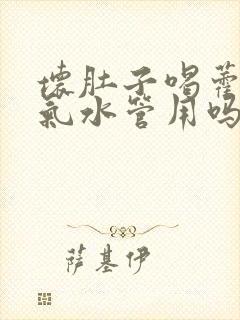 壞肚子喝藿
氣水管用嗎
萨基伊